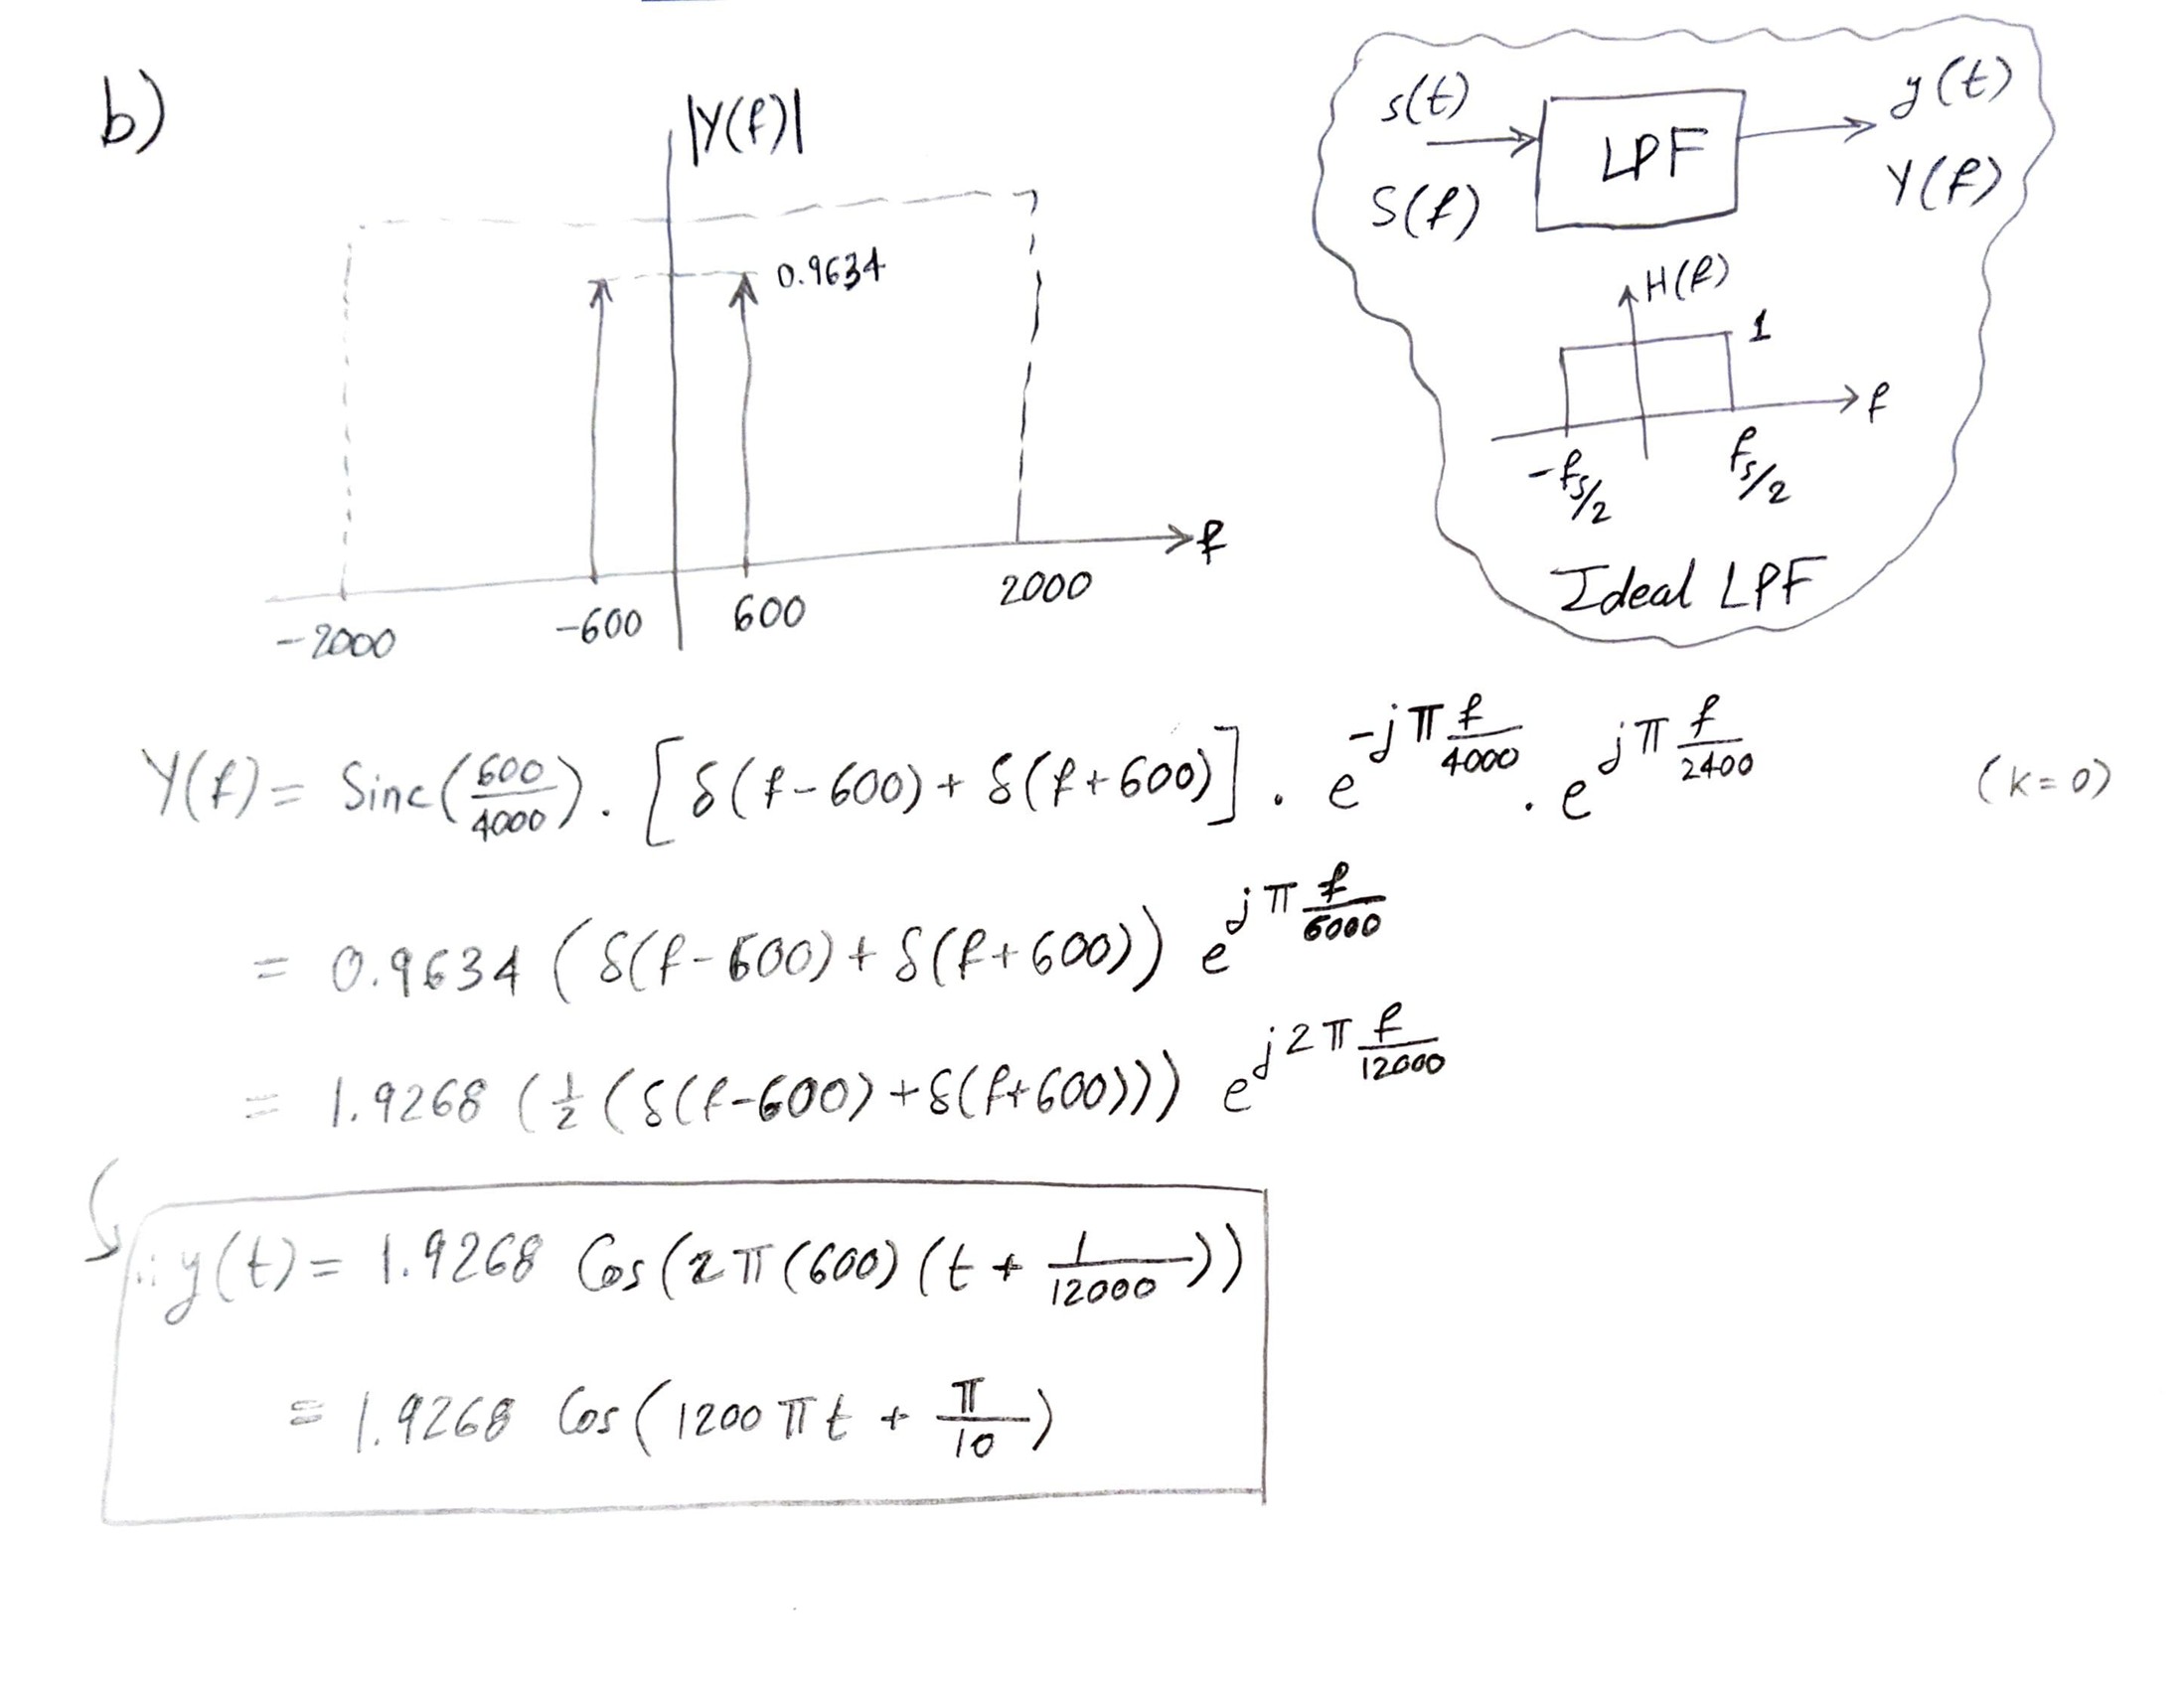 b)
|Y(f)|
0.9634
f
-2000
-600
600
2000
s(t)
S(f)
LPF
y(t)
Y(f)
H(f)
1
f
-fs/2
fs/2
Ideal LPF
Y(f) = Sinc(600/4000) . [δ(f-600) + δ(f+600)] . e^(-jπ f/4000) . e^(jπ f/2400) (k=0)
= 0.9634 (δ(f-600) + δ(f+600)) e^(jπ f/6000)
= 1.9268 (1/2 (δ(f-600) + δ(f+600))) e^(j2π f/12000)
∴ y(t) = 1.9268 Cos(2π(600)(t + 1/12000))
= 1.9268 Cos(1200πt + π/10)